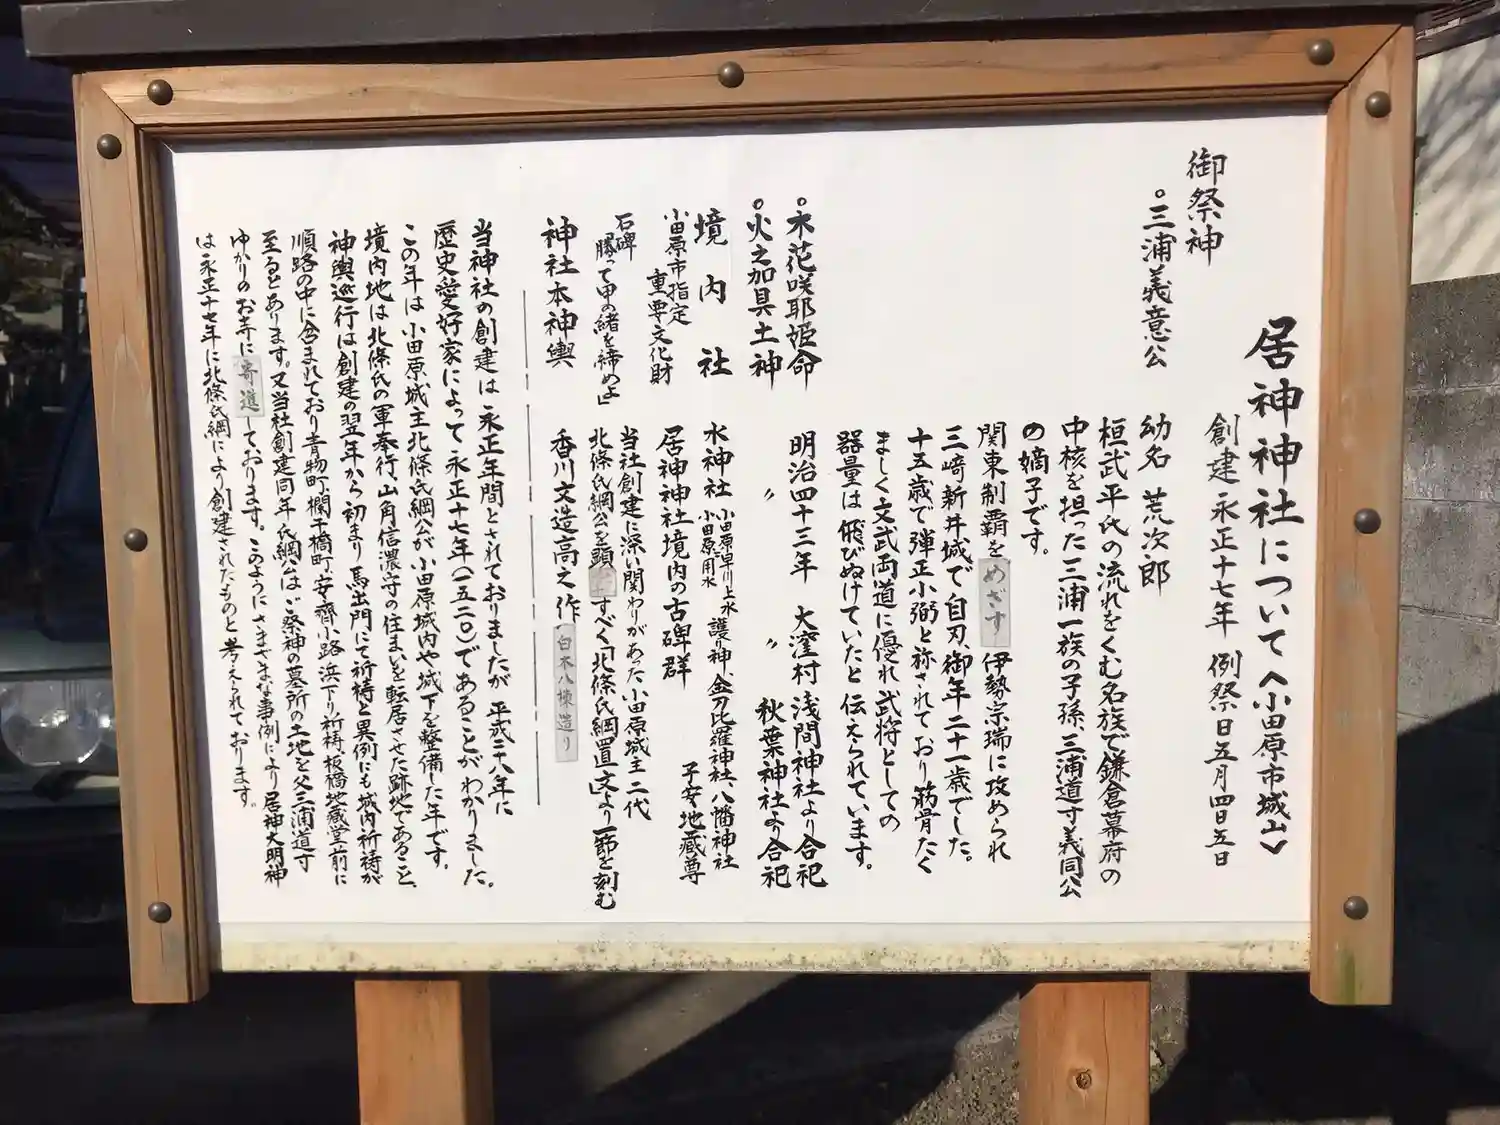 居神神社について〈小田原市城山〉
創建 永正十七年 例祭日五月四日五日
御祭神
。三浦義意公
幼名 荒次郎
桓武平氏の流れをくむ名族で鎌倉幕府の
中核を担った三浦一族の子孫、三浦道寸義同公
の嫡子です。
関東制覇をめざす伊勢宗瑞に攻められ
三﨑新井城で自刃、御年二十一歳でした。
十五歳で弾正小弼と称されており筋骨たく
ましく文武両道に優れ武将としての
器量は飛びぬけていたと伝えられています。
。木花咲耶姫命 明治四十三年 大窪村 浅間神社より合祀
。火之加具土神 〃 〃 秋葉神社より合祀
境内社 水神社 小田原早川上水 小田原用水 護り神、金刀比羅神社、八幡神社
子安地蔵尊
小田原市指定 重要文化財 居神神社境内の古碑群
石碑 勝って甲の緒を締めよ」 当社創建に深い関わりがあった小田原城主二代
北條氏綱公を顕 すべく「北條氏綱公置文」より一節を刻む
神社本神輿 香川文造高之作 白木八棟造り
当神社の創建は永正年間とされておりましたが平成二十八年に
歴史愛好家によって永正十七年(一五二〇)であることがわかりました。
この年は小田原城主北條氏綱公が小田原城内や城下を整備した年です。
境内地は北條氏の軍奉行、山角信濃守の住まいを転居させた跡地であること、
神輿巡行は創建の翌年から初まり馬出門にて祈祷と異例にも城内祈祷が
順路の中に含まれており青物町、欄干橋町、安齋小路、浜下り祈祷、板橋地蔵堂前に
至るとあります。又当社創建同年、氏綱公はご祭神の墓所の土地を父三浦道寸
ゆかりのお寺に寄進しております。このようにさまざまな事例により居神大明神
は永正十七年に北條氏綱により創建されたものと考えられております。